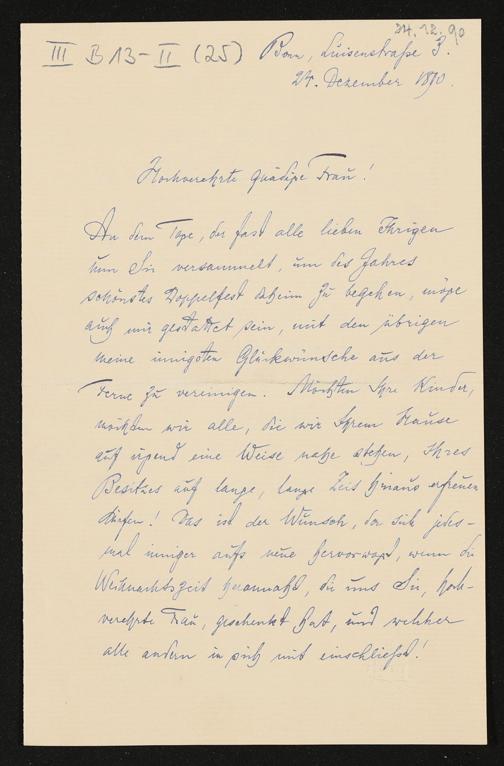 24.12.90
III B 13 - II (25)
Bonn, Luisenstraße 3.
24. Dezember 1890.
Hochverehrte gnädige Frau!
An dem Tage, der fast alle lieben Ihrigen
um Sie versammelt, um des Jahres
schönstes Doppelfest daheim zu begehen, möge
auch mir gestattet sein, mit den übrigen
meine innigsten Glückwünsche aus der
Ferne zu vereinigen. Möchten Ihre Kinder,
möchten wir alle, die wir Ihrem Hause
auf irgend eine Weise nahe stehen, Ihres
Besitzes auf lange, lange Zeit hinaus erfreuen
dürfen! Das ist der Wunsch, der sich jedes-
mal inniger aufs neue hervorwagt, wenn die
Weihnachtszeit herannaht, die uns Sie, hoch-
verehrte Frau, geschenkt hat, und welcher
alle andern in sich mit einschließt!